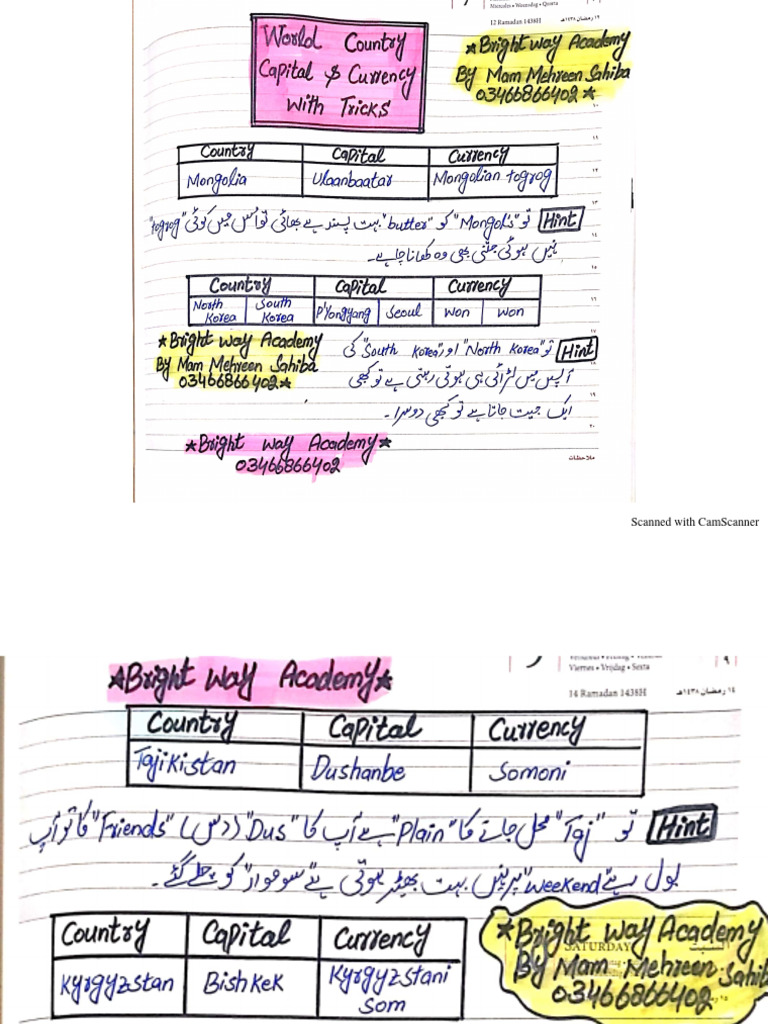 Miercoles • Woensdag • Quarta
12 Ramadan 1438H
١٢ رمضان ١٤٣٨هـ
World Country
Capital & Currency
With Tricks
★Bright way Academy
By Mam Mehreen Sahiba
03466866402★
١١
Country Capital Currency
١٢
Mongolia Ulaanbaatar Mongolian togrog
١٣
Hint تو "Mongol's" کو "butter" بہت پسند ہے بھائی تو اُس میں کوئی "togrog"
١٤
نہیں ہوتی جتنی بھی وہ کھانا چاہے۔
١٥
Country Capital Currency
١٦
North Korea South Korea P'Yongyang Seoul Won Won
١٧
★Bright way Academy
By Mam Mehreen Sahiba
03466866402★
Hint تو "North Korea" اور "South Korea" کی
١٨
آپس میں لڑائی ہی ہوتی رہتی ہے تو کبھی
١٩
ایک جیت جاتا ہے تو کبھی دوسرا۔
٢٠
★Bright way Academy★
03466866402
ملاحظات
Scanned with CamScanner
★Bright way Academy★
Viernes • Vrijdag • Sexta
٩
14 Ramadan 1438H
١٤ رمضان ١٤٣٨هـ
Country Capital Currency
Tajikistan Dushanbe Somoni
Hint تو "Taj" محل جانے کا "Plain" ہے آپ کا "Dus" (دس) "Friends" کا تو آپ
بول رہے "weekend" پر نہیں بہت بھیڑ ہوتی ہے "سوموار" کو چلے گئے۔
Country Capital Currency
Kyrgyzstan Bishkek Kyrgyzstani Som
★Bright way Academy
SATURDAY
By Mam Mehreen Sahiba
03466866402